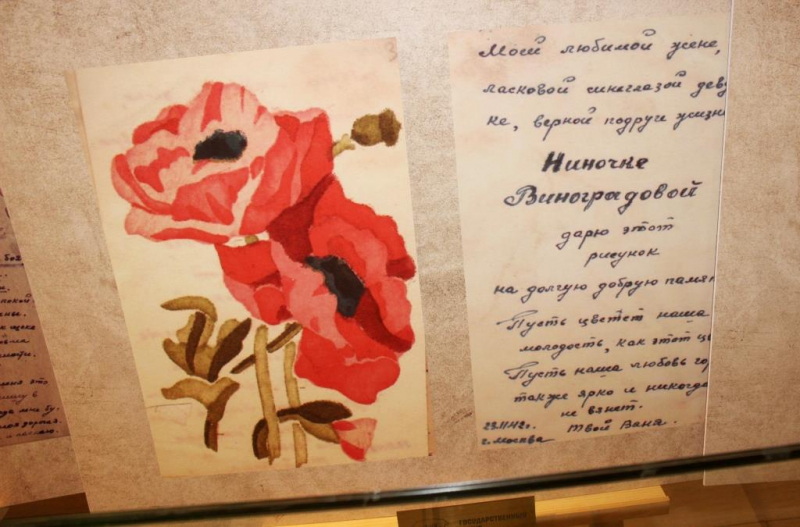 Моей любимой жене,
ласковой синеглазой деву
ке, верной подруги жизн
Ниночке
Виноградовой
дарю этот
рисунок
на долгую добрую памят
Пусть цветет наша
молодость, как этот цв
Пусть наша любовь гор
также ярко и никогда
не вянет.
23.11.42г. Твой Ваня.
г. Москва
ГОСУДАРСТВЕННЫЙ